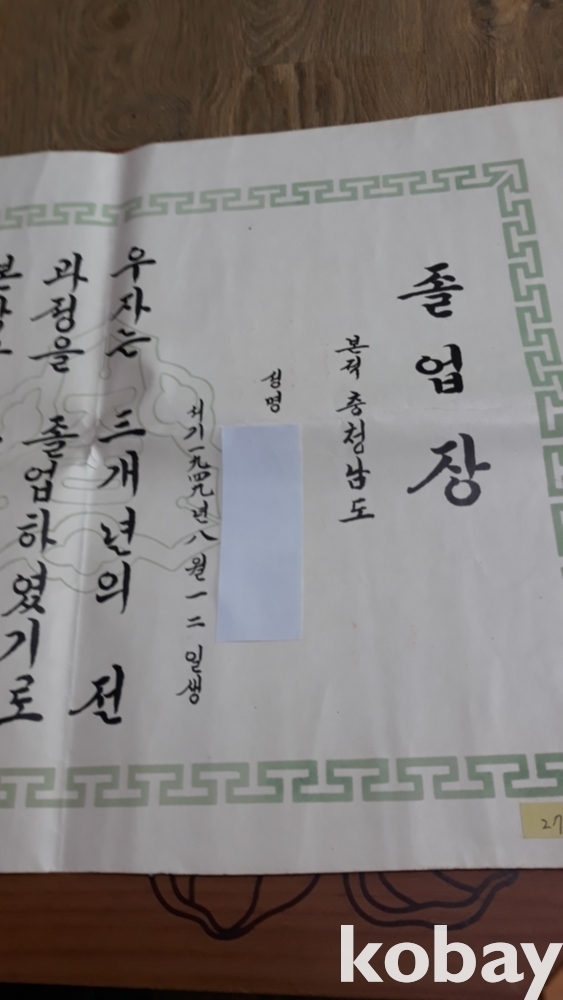 졸업장
본적 충청남도
성명
서기一九四九년八월一二일생
우자는 三개년의 전
과정을 졸업하였기로
27
kobay